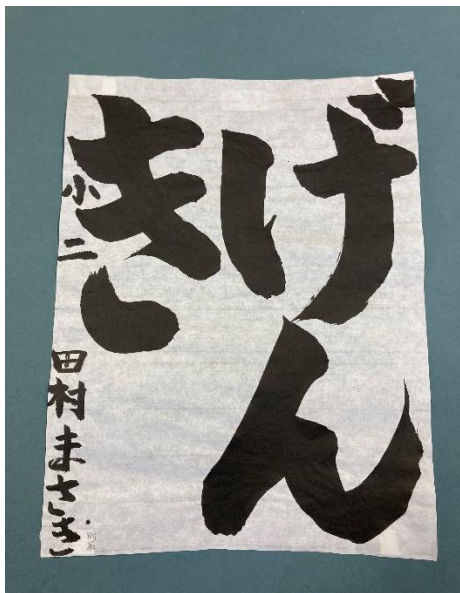 げん
き
小二 田村まさき